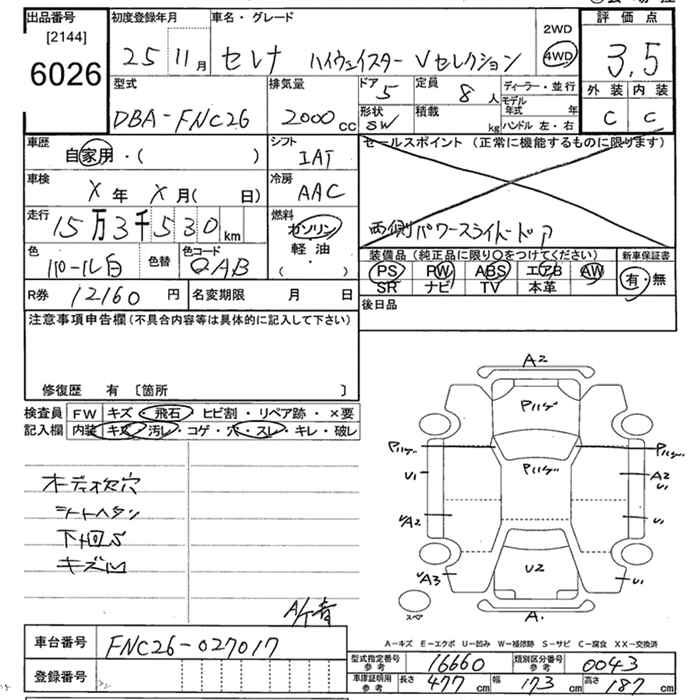 出品番号 初度登録年月 車名・グレード 2WD 評価点
[2144] 25 11月 セレナ ハイウェイスター Vセレクション 4WD 3.5
6026
型式 排気量 ドア 5 定員 8人 ディーラー・並行 外装 内装
DBA-FNC26 2000cc 形状 SW 積載 kg モデル年式 年 C C
ハンドル 左・右
車歴 自家用・( ) シフト IAT セールスポイント (正常に機能するものに限ります)
車検 X年 X月( 日) 冷房 AAC
走行 15万3千530km 燃料 ガソリン・軽油・( ) 両側パワースライドドア
色 パール白 色替 色コード QAB 装備品 (純正品に限り○をつけてください) 新車保証書
PS PW ABS エアB AW 有・無
SR ナビ TV 本革
R券 12160円 名変期限 月 日 後日品
注意事項申告欄(不具合内容等は具体的に記入して下さい)
修復歴 有 〔箇所 〕
検査員 FW キズ・飛石・ヒビ割・リペア跡・×要
記入欄 内装 キズ・汚レ・コゲ・穴・スレ・キレ・破レ
オーディオ欠穴
シートヘタリ
下回りS
キズ凹
A2
Pハゲ
Pハゲ Pハゲ Pハゲ
U1 A2 U1
UA2 U1
UA3 U2 U1
スペア A1
A-キズ E-エクボ U-凹み W-補修跡 S-サビ C-腐食 XX-交換済
車台番号 FNC26-027017
型式指定番号 参考 16660 類別区分番号 参考 0043
登録番号
車庫証明用 参考 長さ 477cm 幅 173cm 高さ 187cm